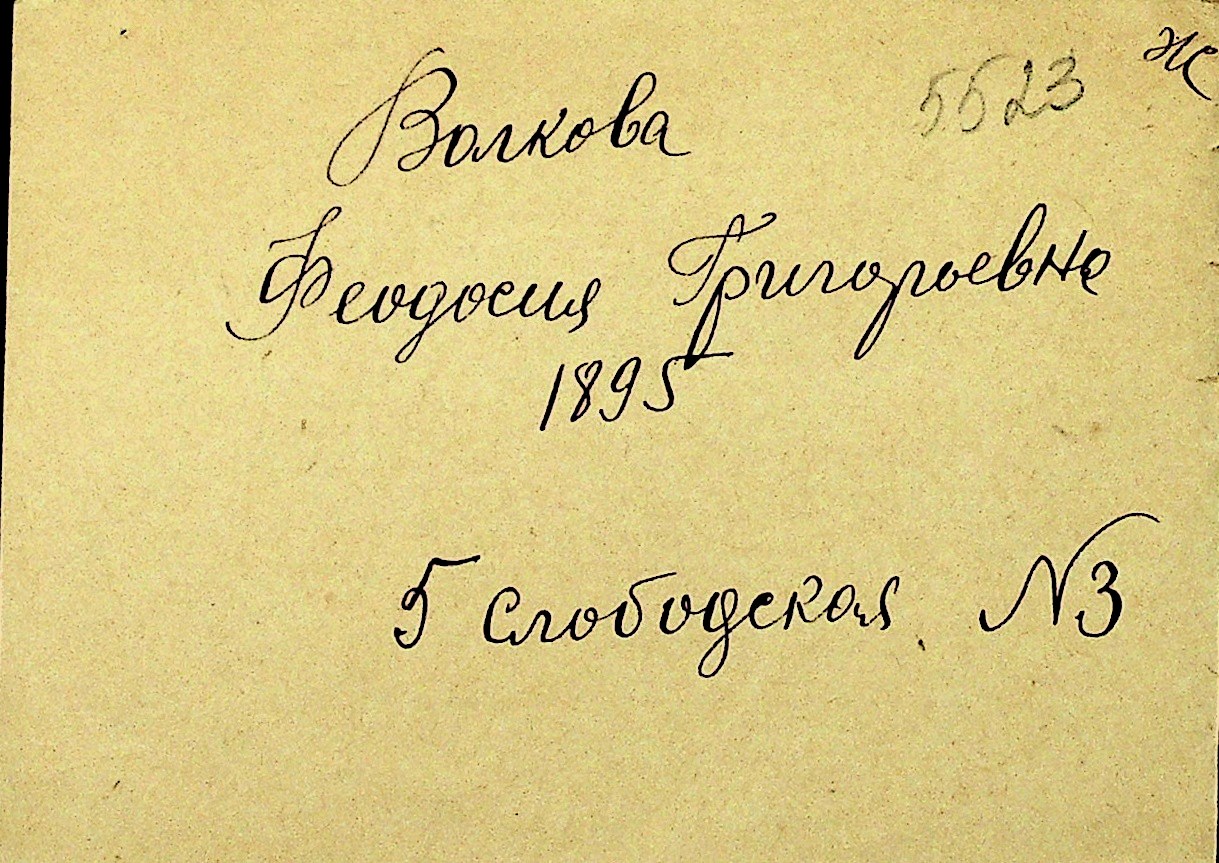 5523 ж
Волкова
Феодосия Григорьевна
1895
5 Слободская N3